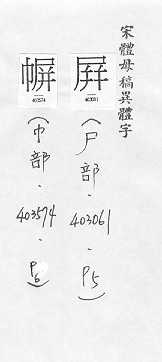 宋體母稿異體字
屛
403061
(尸部.403061.P5)
帡
403574
(巾部.403574.P6)